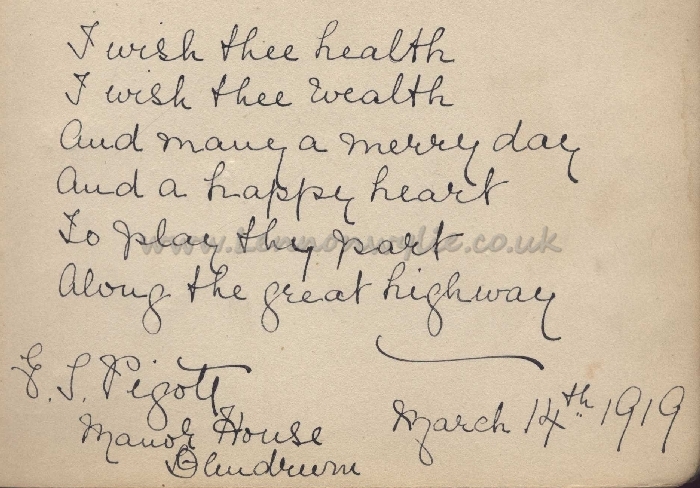 I wish thee health
I wish thee wealth
And many a merry day
And a happy heart
To play thy part
Along the great highway
www.lennonwylie.co.uk
E. S. Pigott
Manor House
Dundrum
March 14th 1919